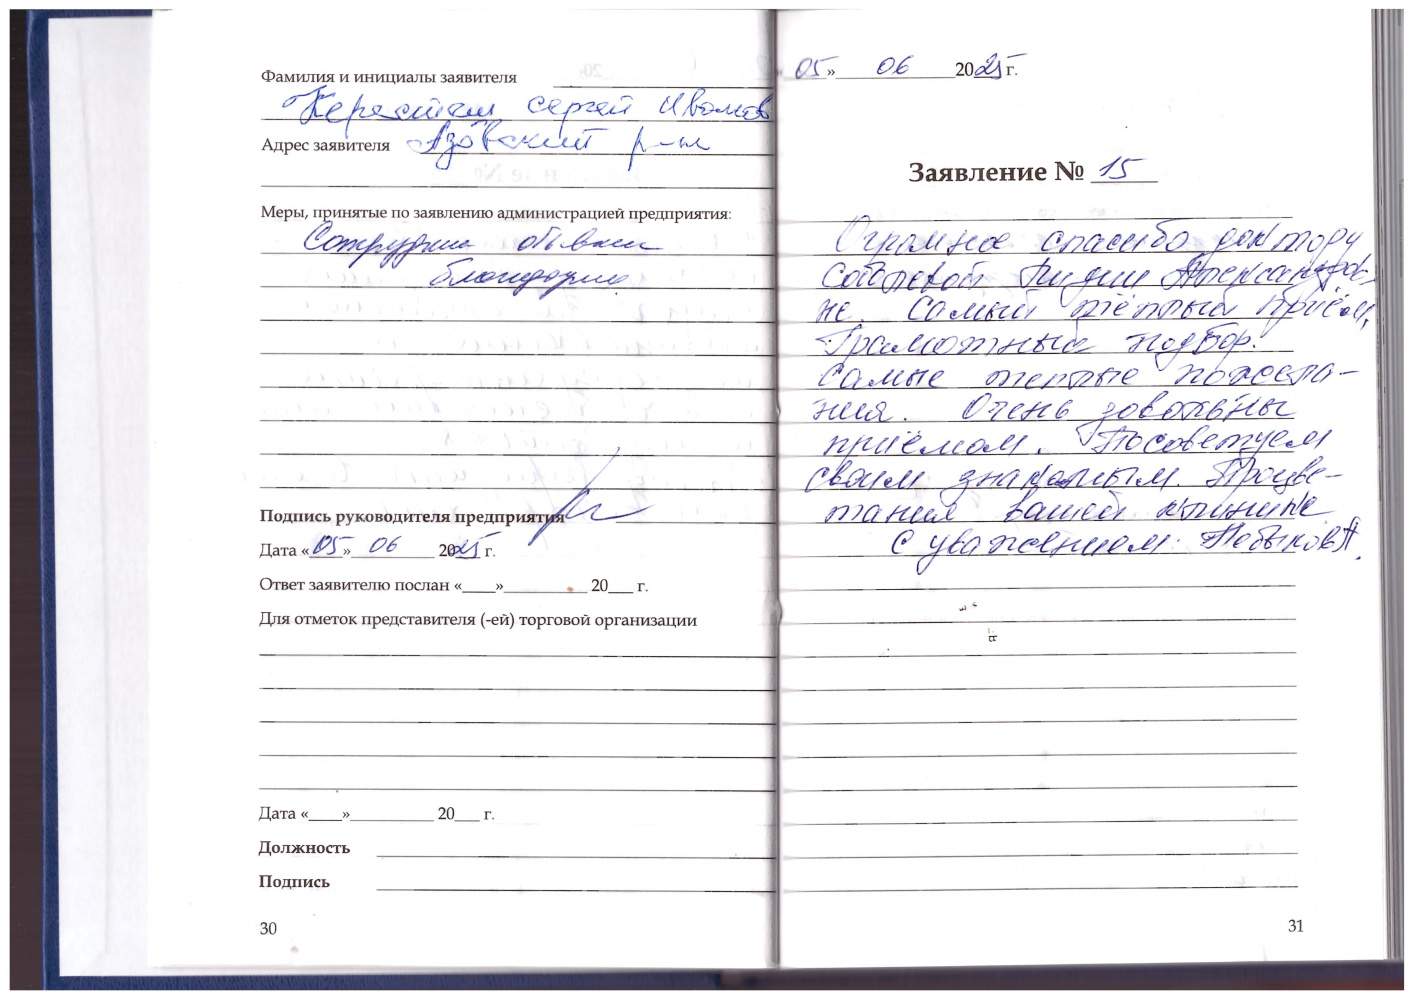 Фамилия и инициалы заявителя
сергей Иванов
Адрес заявителя Азовский р-н
Меры, принятые по заявлению администрацией предприятия:
Сотруднику объявлена
благодарность
Подпись руководителя предприятия
Дата «05» 06 2025 г.
Ответ заявителю послан «____»__________ 20___ г.
Для отметок представителя (-ей) торговой организации
Дата «____»__________ 20___ г.
Должность
Подпись
30
05» 06 2025 г.
Заявление № 15
Огромное спасибо доктору
Лидии Александров-
не. Самый тёплый приём,
Грамотный подбор.
самые теплые пожела-
ния. Очень довольны
приёмом. Посоветуем
своим знакомым. Процве-
тания вашей клинике
с уважением
31